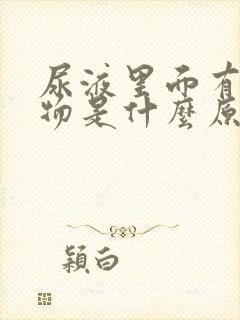 尿液里面有
物是什麼原
穎白